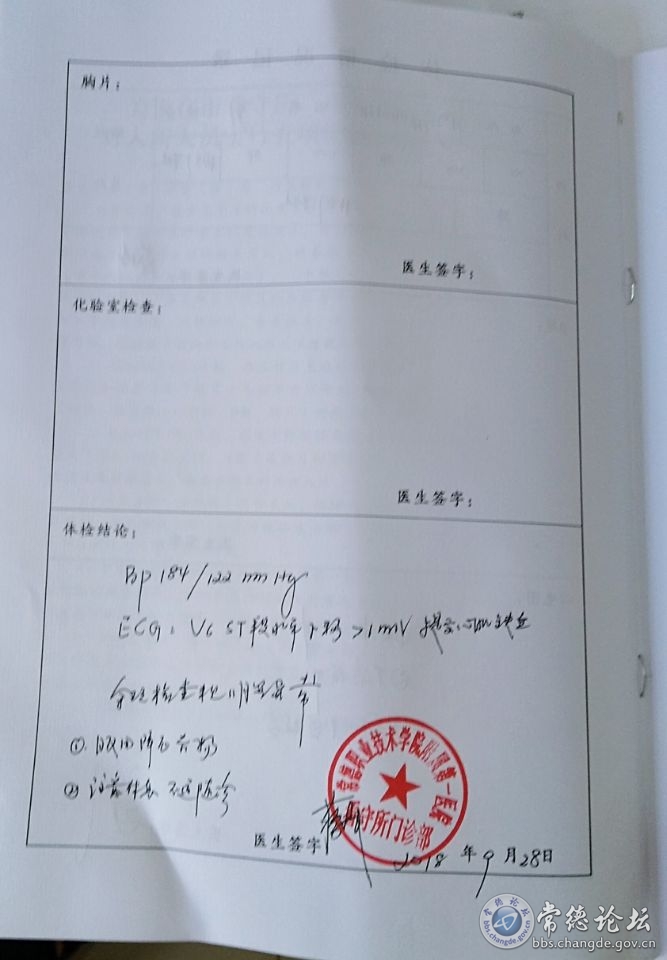 胸片：
医生签字：
化验室检查：
医生签字：
体检结论：
Bp 184/122 mmHg
ECG: V6 ST段水平下移 >1mV 提示心肌缺血
余现检查无明显异常
① 服用降压药物
② 注意休息 不适随诊
常德职业技术学院附属第一医院
看守所门诊部
医生签字
2018 年 9 月 28 日
常德论坛
bbs.changde.gov.cn